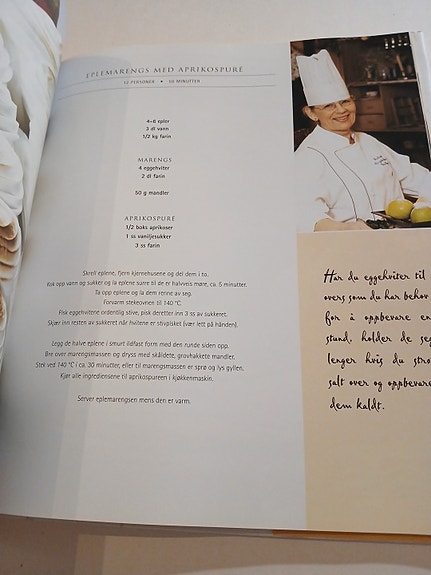 EPLEMARENGS MED APRIKOSPURÉ
12 PERSONER • 50 MINUTTER
4–6 epler
3 dl vann
1/2 kg farin
MARENGS
4 eggehviter
2 dl farin
50 g mandler
APRIKOSPURÉ
1/2 boks aprikoser
1 ss vaniljesukker
3 ss farin
Skrell eplene, fjern kjernehusene og del dem i to.
Kok opp vann og sukker og la eplene surre til de er halvveis møre, ca. 5 minutter.
Ta opp eplene og la dem renne av seg.
Forvarm stekeovnen til 140 °C.
Pisk eggehvitene ordentlig stive, pisk deretter inn 3 ss av sukkeret.
Skjær inn resten av sukkeret når hvitene er stivpisket (vær lett på hånden).
Legg de halve eplene i smurt ildfast form med den runde siden opp.
Bre over marengsmassen og dryss med skåldede, grovhakkete mandler.
Stek ved 140 °C i ca. 30 minutter, eller til marengsmassen er sprø og lys gyllen.
Kjør alle ingrediensene til aprikospureen i kjøkkenmaskin.
Server eplemarengsen mens den er varm.
Har du eggehviter til
overs som du har behov
for å oppbevare en
stund, holder de seg
lenger hvis du strø
salt over og oppbevare
dem kaldt.